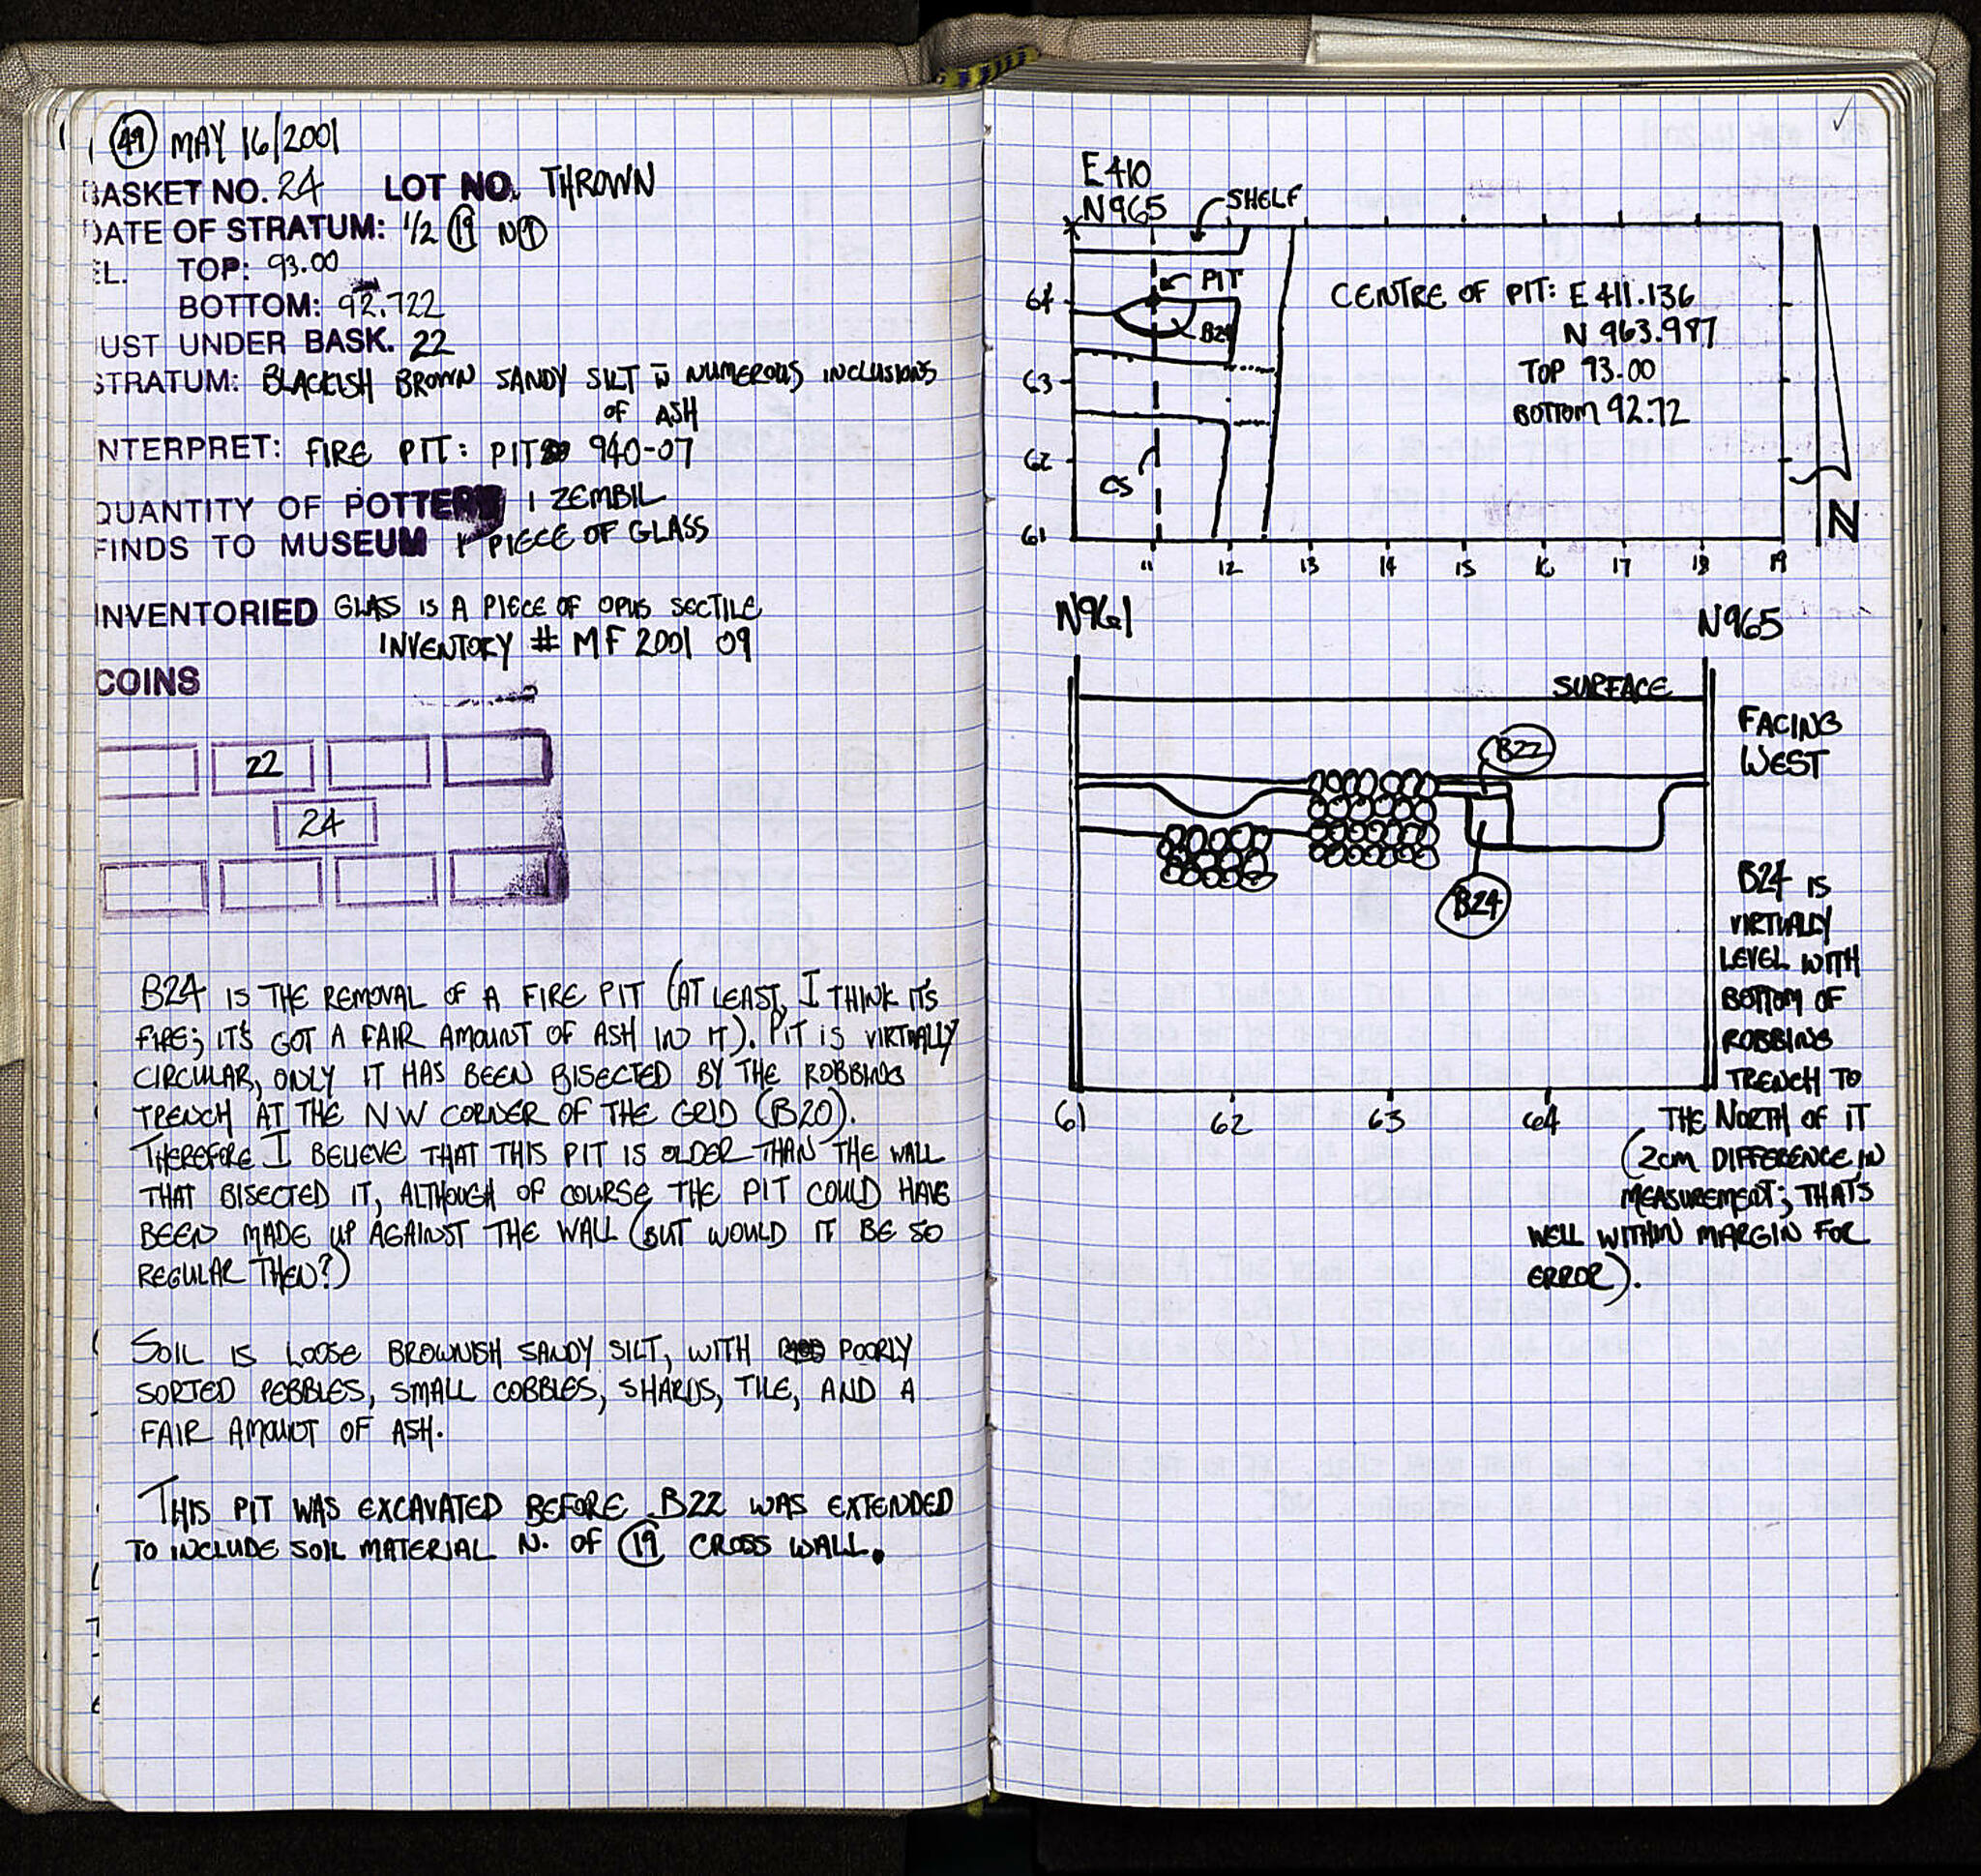 49 MAY 16/2001
BASKET NO. 24 LOT NO. THROWN
DATE OF STRATUM: 1/2 19 N
EL. TOP: 93.00
BOTTOM: 92.722
JUST UNDER BASK. 22
STRATUM: BLACKISH BROWN SANDY SILT W NUMEROUS INCLUSIONS
OF ASH
INTERPRET: FIRE PIT: PIT 940-07
QUANTITY OF POTTERY 1 ZEMBIL
FINDS TO MUSEUM 1 PIECE OF GLASS
INVENTORIED GLASS IS A PIECE OF OPUS SECTILE
INVENTORY # MF 2001 09
COINS
22
24
B24 IS THE REMOVAL OF A FIRE PIT (AT LEAST, I THINK IT'S
FIRE; IT'S GOT A FAIR AMOUNT OF ASH IN IT). PIT IS VIRTUALLY
CIRCULAR, ONLY IT HAS BEEN BISECTED BY THE ROBBING
TRENCH AT THE NW CORNER OF THE GRID (B20).
THEREFORE I BELIEVE THAT THIS PIT IS OLDER THAN THE WALL
THAT BISECTED IT, ALTHOUGH OF COURSE THE PIT COULD HAVE
BEEN MADE UP AGAINST THE WALL (BUT WOULD IT BE SO
REGULAR THEN?)
SOIL IS LOOSE BROWNISH SANDY SILT, WITH POORLY
SORTED PEBBLES, SMALL COBBLES, SHARDS, TILE, AND A
FAIR AMOUNT OF ASH.
THIS PIT WAS EXCAVATED BEFORE B22 WAS EXTENDED
TO INCLUDE SOIL MATERIAL N. OF 19 CROSS WALL.
E410
N965
SHELF
PIT
B24
64
63
62
61
CS
CENTRE OF PIT: E 411.136
N 963.987
TOP 93.00
BOTTOM 92.72
N
11 12 13 14 15 16 17 18 19
N961
N965
SURFACE
FACING
WEST
B22
B24
B24 IS
VIRTUALLY
LEVEL WITH
BOTTOM OF
ROBBING
TRENCH TO
61 62 63 64
THE NORTH OF IT
(2cm DIFFERENCE IN
MEASUREMENT; THAT'S
WELL WITHIN MARGIN FOR
ERROR).